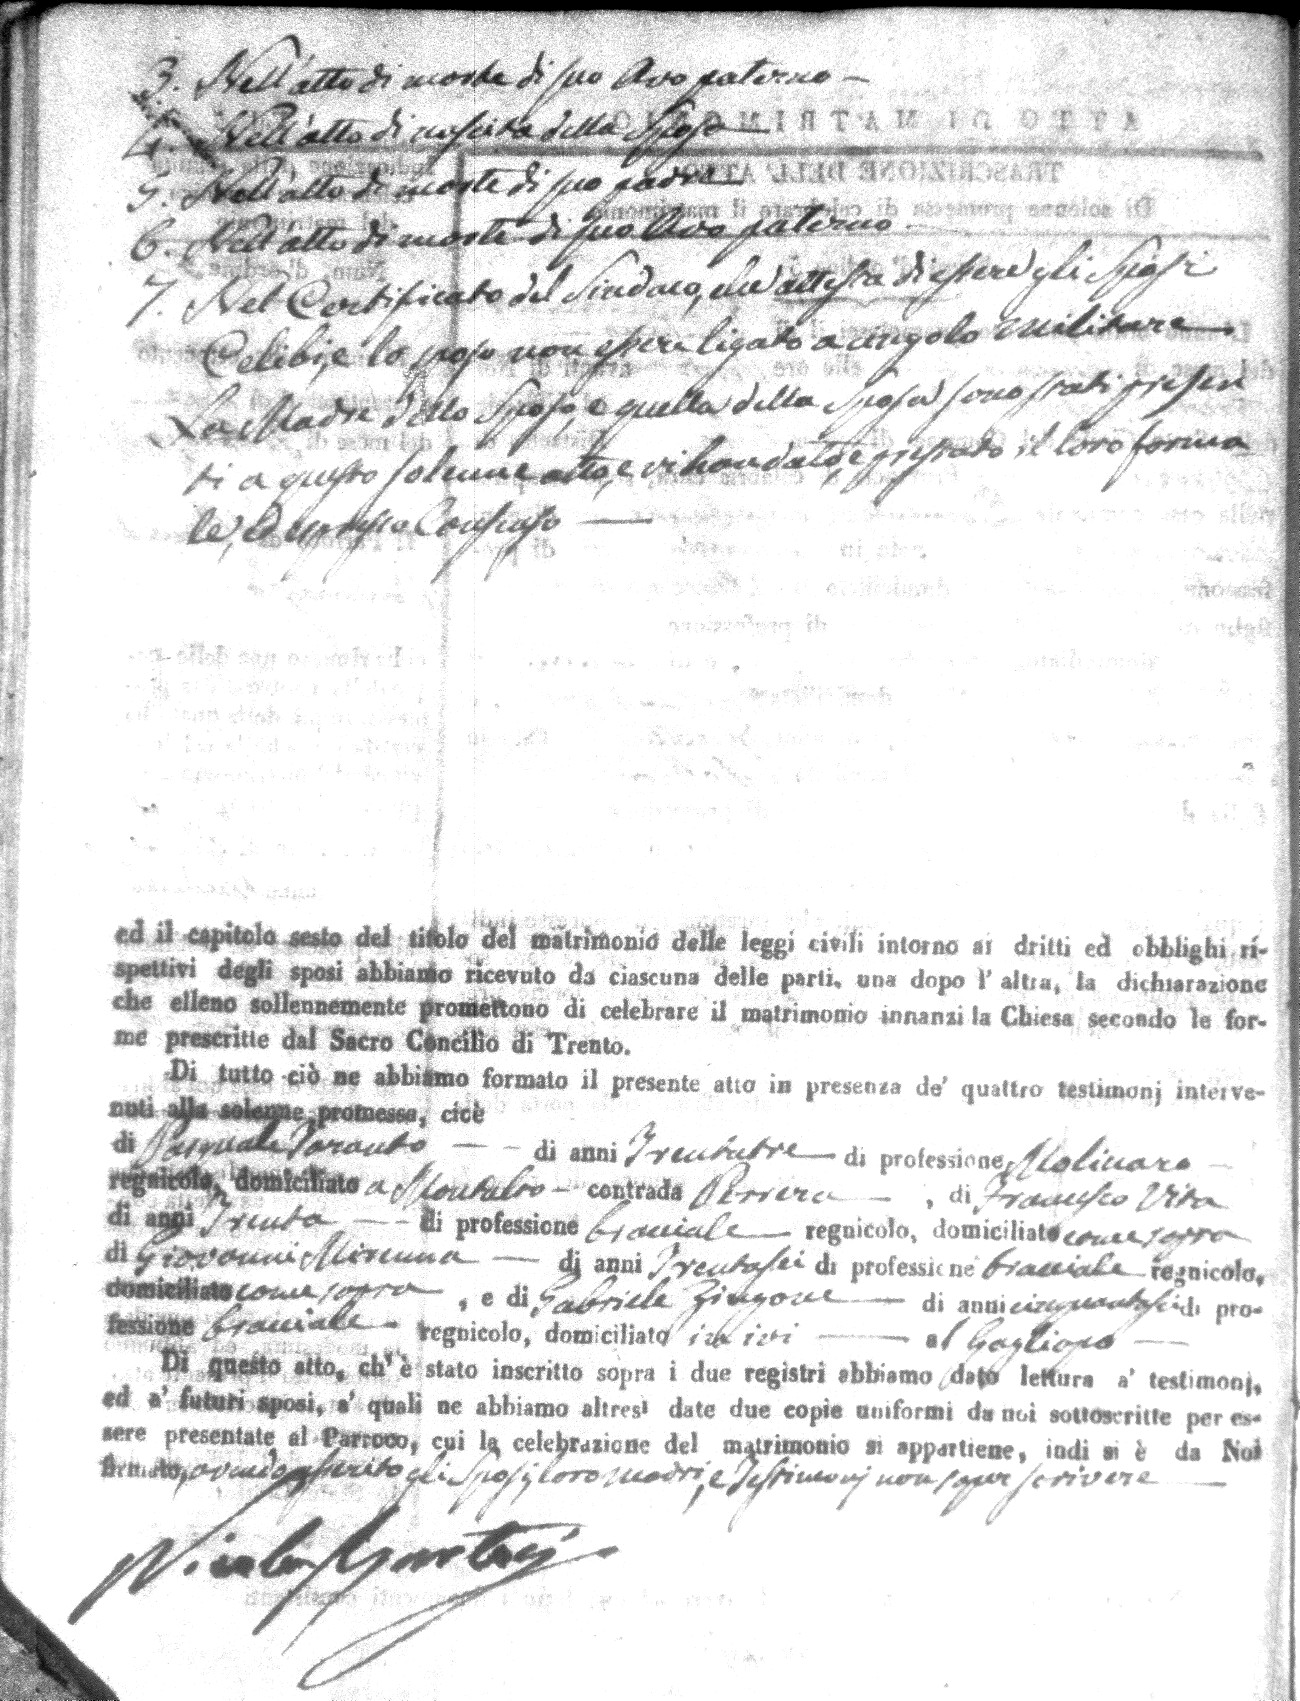 3. Nell'atto di morte di suo Avo paterno —
4. Nell'atto di nascita della Sposa —
5. Nell'atto di morte di suo padre —
6. Nell'atto di morte di suo Avo paterno —
7. Nel Certificato del Sindaco, che attesta di essere gli Sposi
Celibi, e lo sposo non essere ligato a vingolo militare —
La Madre dello Sposo, e quella della Sposa sono stati presen
ti a questo solenne atto, e vi han dato, e prestato il loro forma
le, ed espresso Consenso —
ed il capitolo sesto del titolo del matrimonio delle leggi civili intorno ai dritti ed obblighi ri-
spettivi degli sposi abbiamo ricevuto da ciascuna delle parti, una dopo l' altra, la dichiarazione
che elleno sollennemente promettono di celebrare il matrimonio innanzi la Chiesa secondo le for-
me prescritte dal Sacro Concilio di Trento.
Di tutto ciò ne abbiamo formato il presente atto in presenza de' quattro testimonj interve-
nuti alla solenne promessa, cioè
di Pasquale Taranto — di anni Trentatre — di professione Molinaro —
regnicolo, domiciliato a Montalto — contrada Perrera — , di Francesco Vita
di anni Trenta — di professione braciale — regnicolo, domiciliato come sopra
di Giovanni — di anni Trentasei di professione braciale regnicolo,
domiciliato come sopra , e di Gabriele Zingone — di anni cinquantasei di pro-
fessione braciale — regnicolo, domiciliato ivi ivi — al —
Di questo atto, ch' è stato inscritto sopra i due registri abbiamo dato lettura a' testimonj,
ed a' futuri sposi, a' quali ne abbiamo altresì date due copie uniformi da noi sottoscritte per es-
sere presentate al Parroco, cui la celebrazione del matrimonio si appartiene, indi si è da Noi
firmato, avendo asserito gli Sposi, loro madri, e Testimonj non saper scrivere —
Nicola